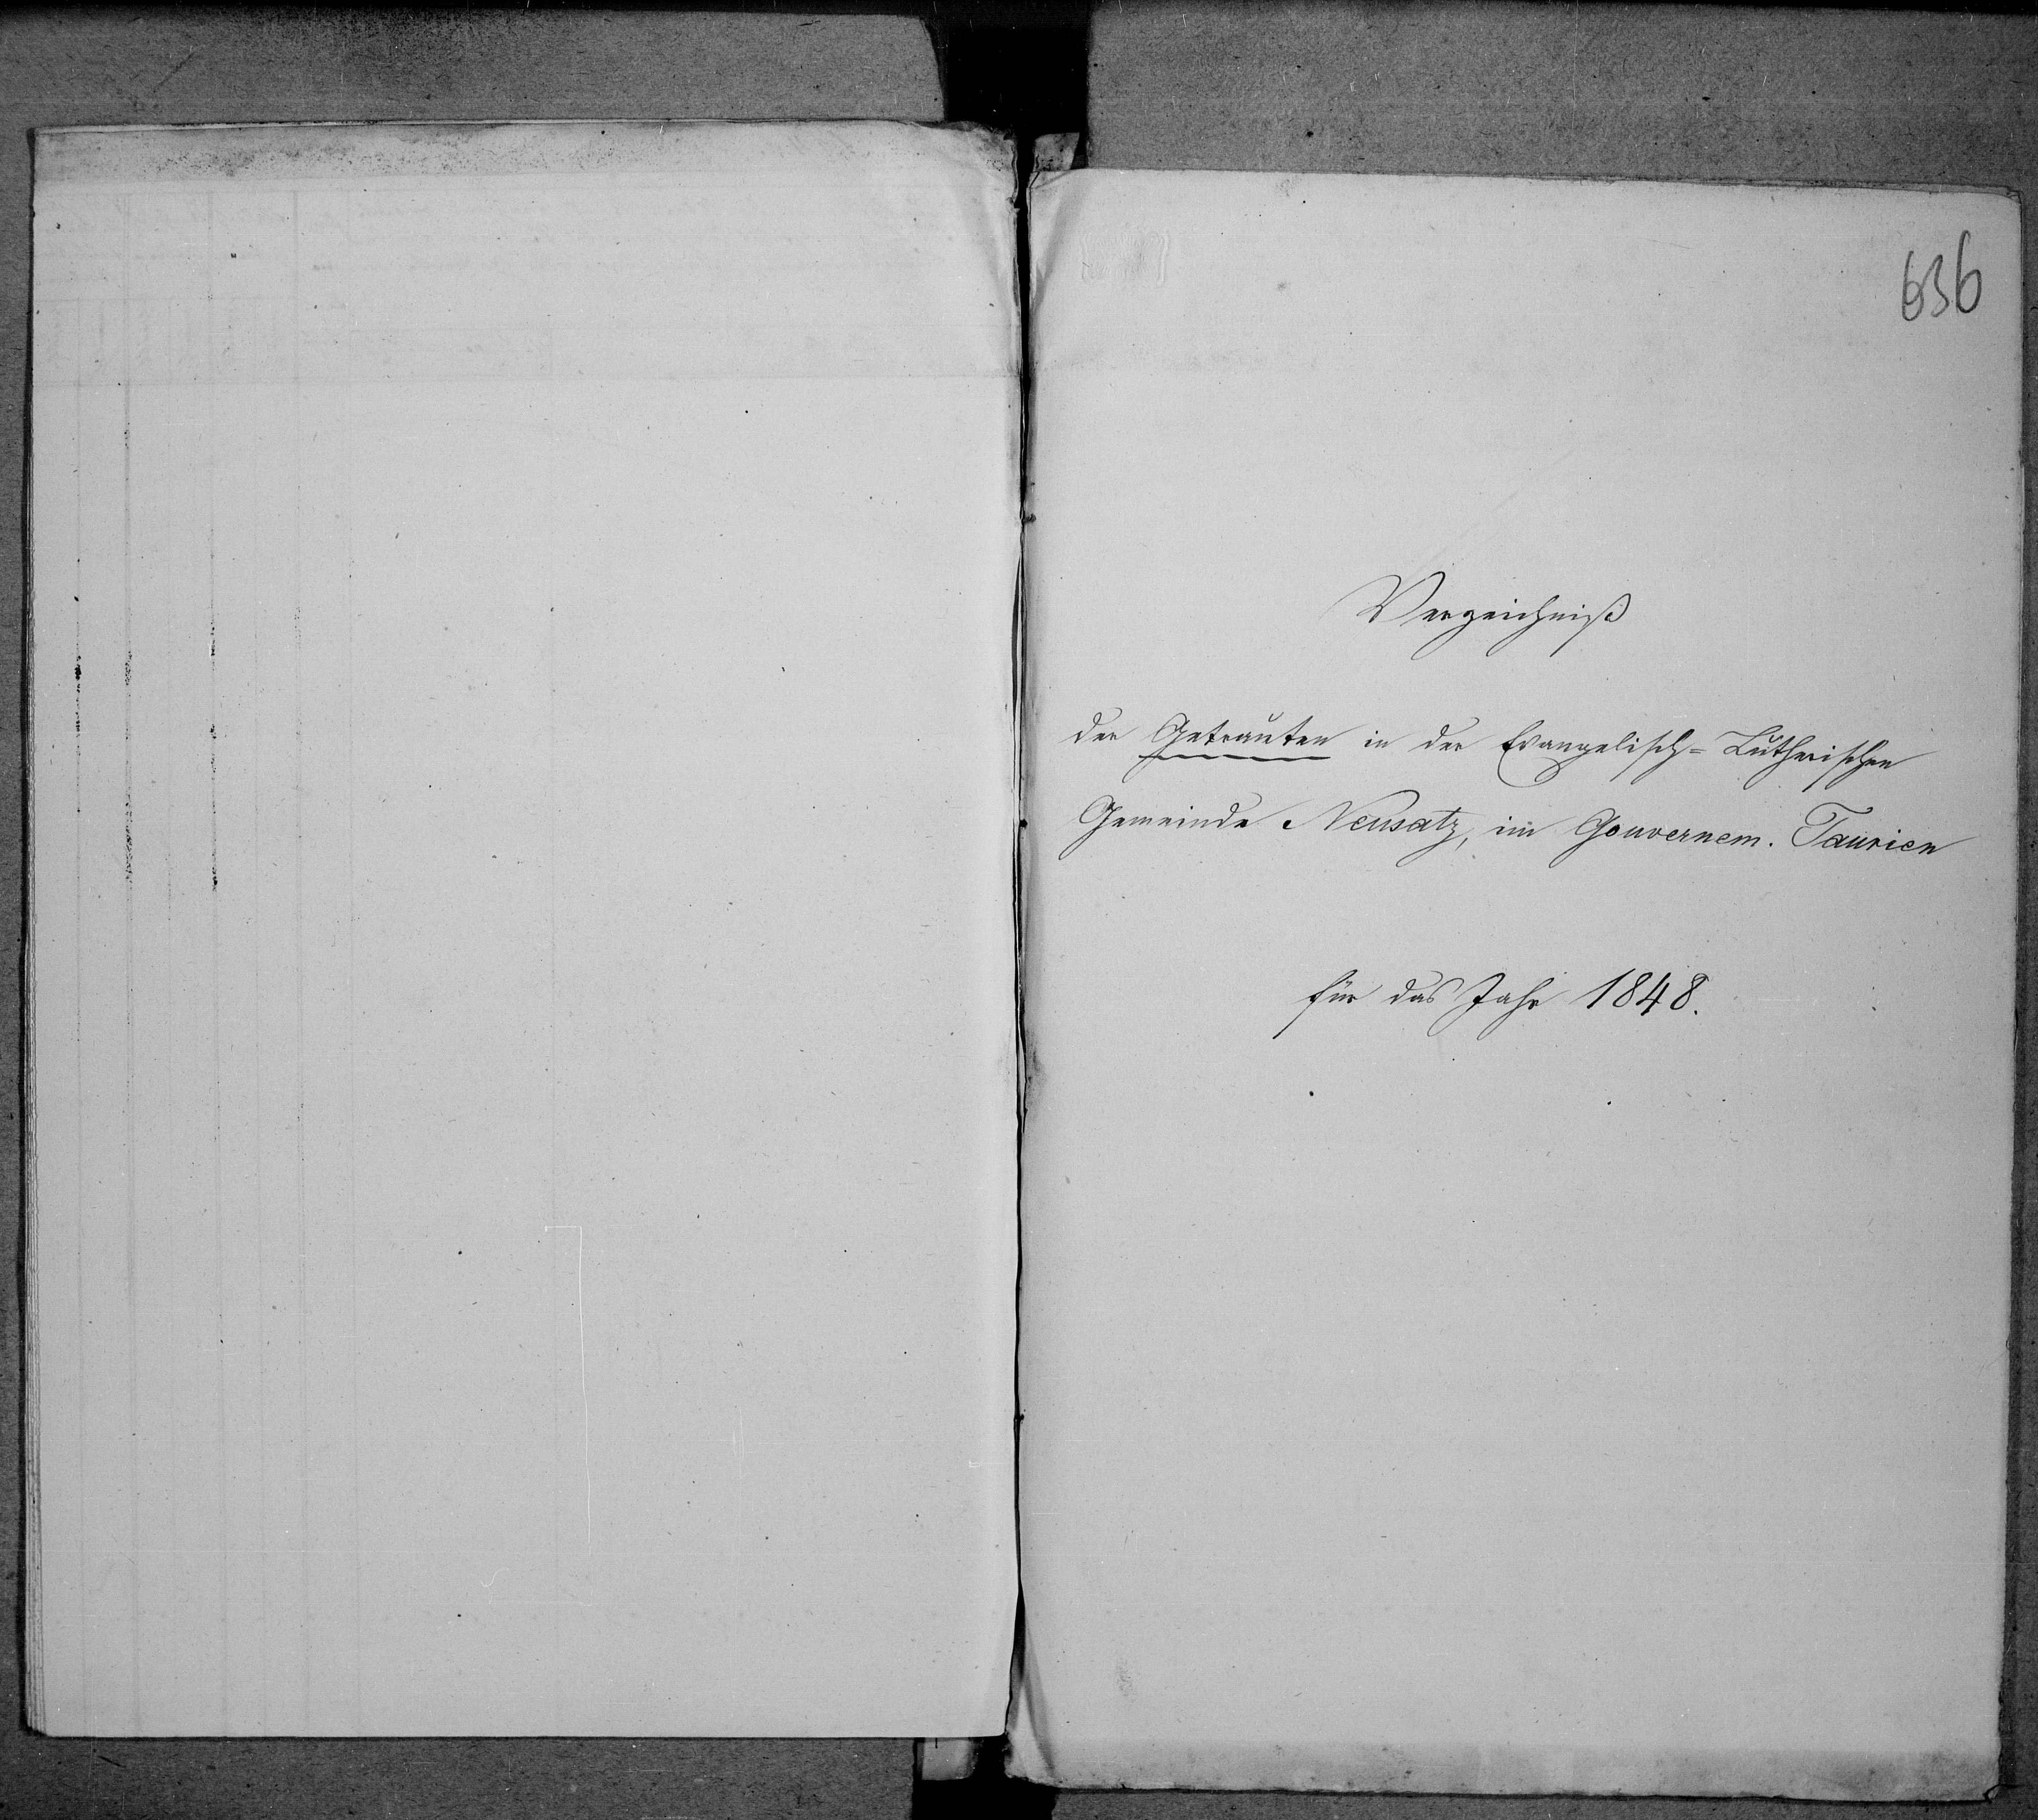 636
Verzeichniß
der Getrauten in der Evangelisch=Lutherischen
Gemeinde Neusatz, im Gouvernem. Taurien
für das Jahr 1848.